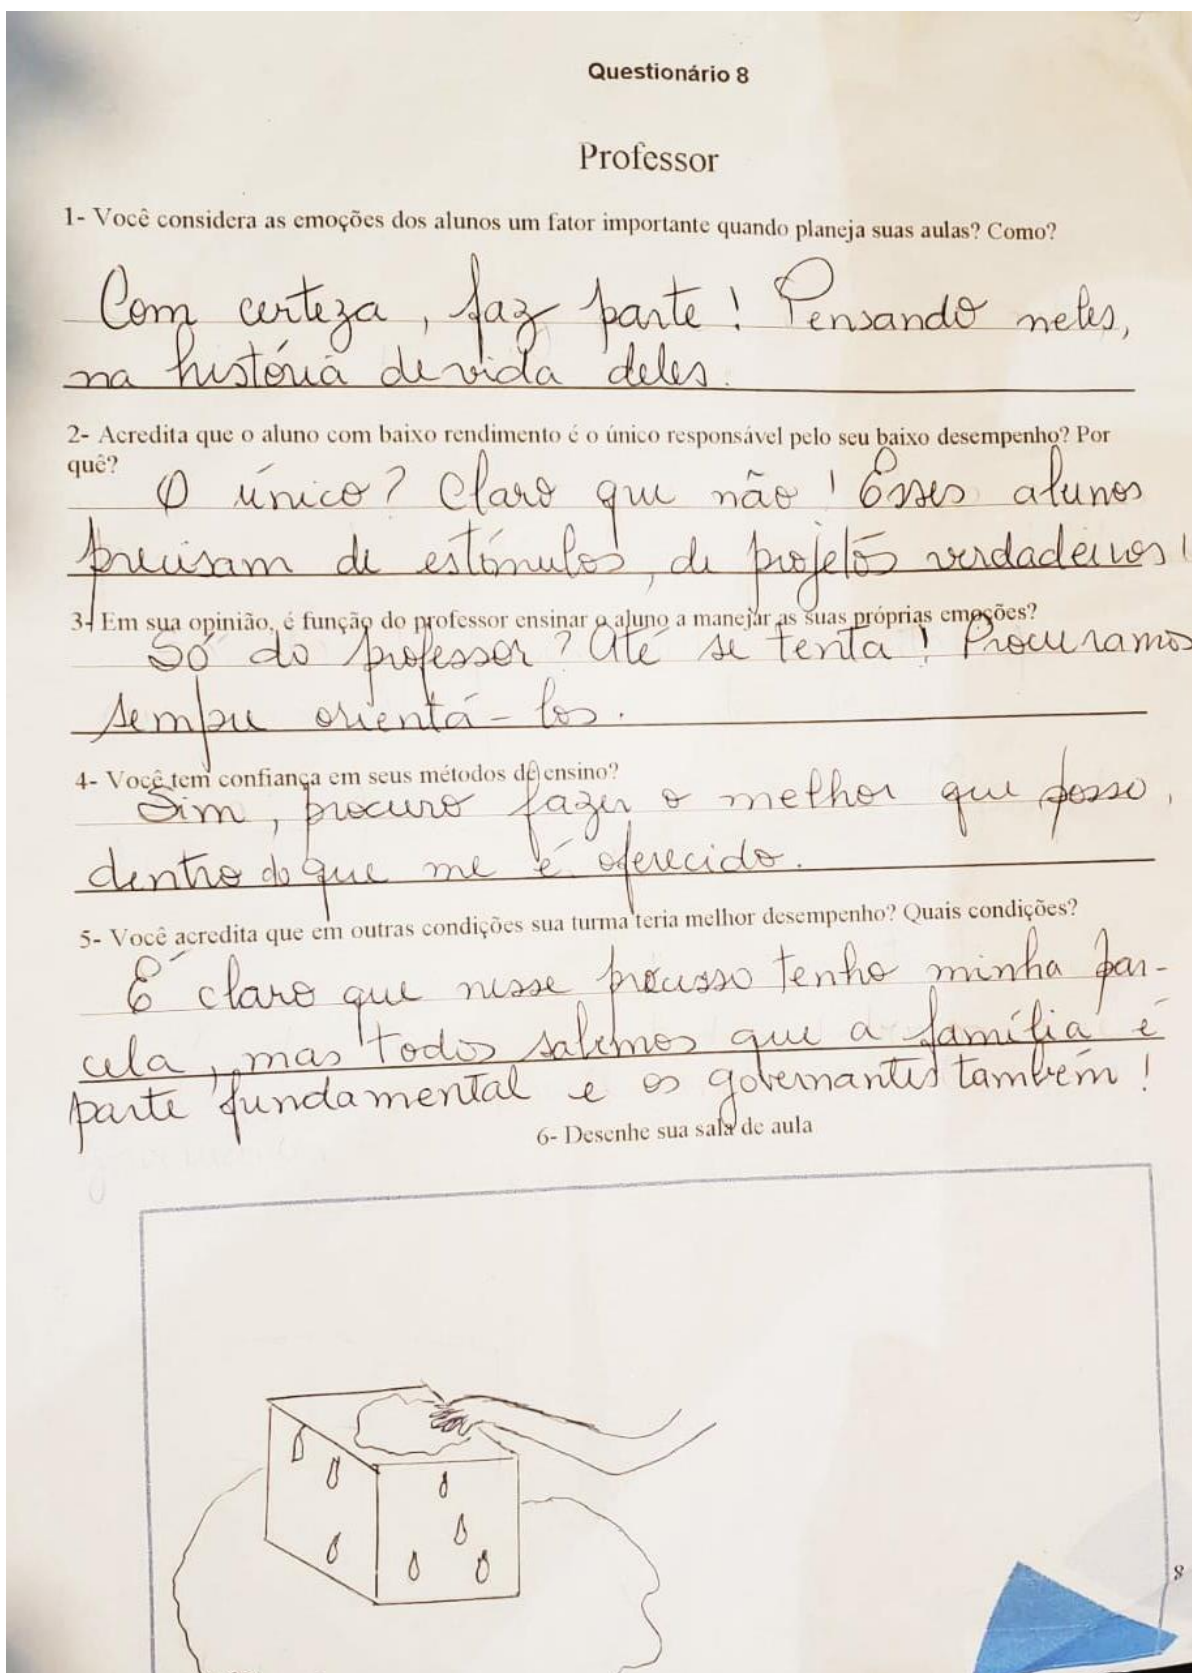 Questionário 8
Professor
1- Você considera as emoções dos alunos um fator importante quando planeja suas aulas? Como?
Com certeza, faz parte! Pensando neles,
na história de vida deles.
2- Acredita que o aluno com baixo rendimento é o único responsável pelo seu baixo desempenho? Por
quê?
O único? Claro que não! Esses alunos
precisam de estímulos, de projetos verdadeiros!
3- Em sua opinião, é função do professor ensinar o aluno a manejar as suas próprias emoções?
Só do professor? Até se tenta! Procuramos
sempre orientá-los.
4- Você tem confiança em seus métodos de ensino?
Sim, procuro fazer o melhor que posso,
dentro do que me é oferecido.
5- Você acredita que em outras condições sua turma teria melhor desempenho? Quais condições?
É claro que nesse processo tenho minha par-
cela, mas todos sabemos que a família é
parte fundamental e os governantes também!
6- Desenhe sua sala de aula
8